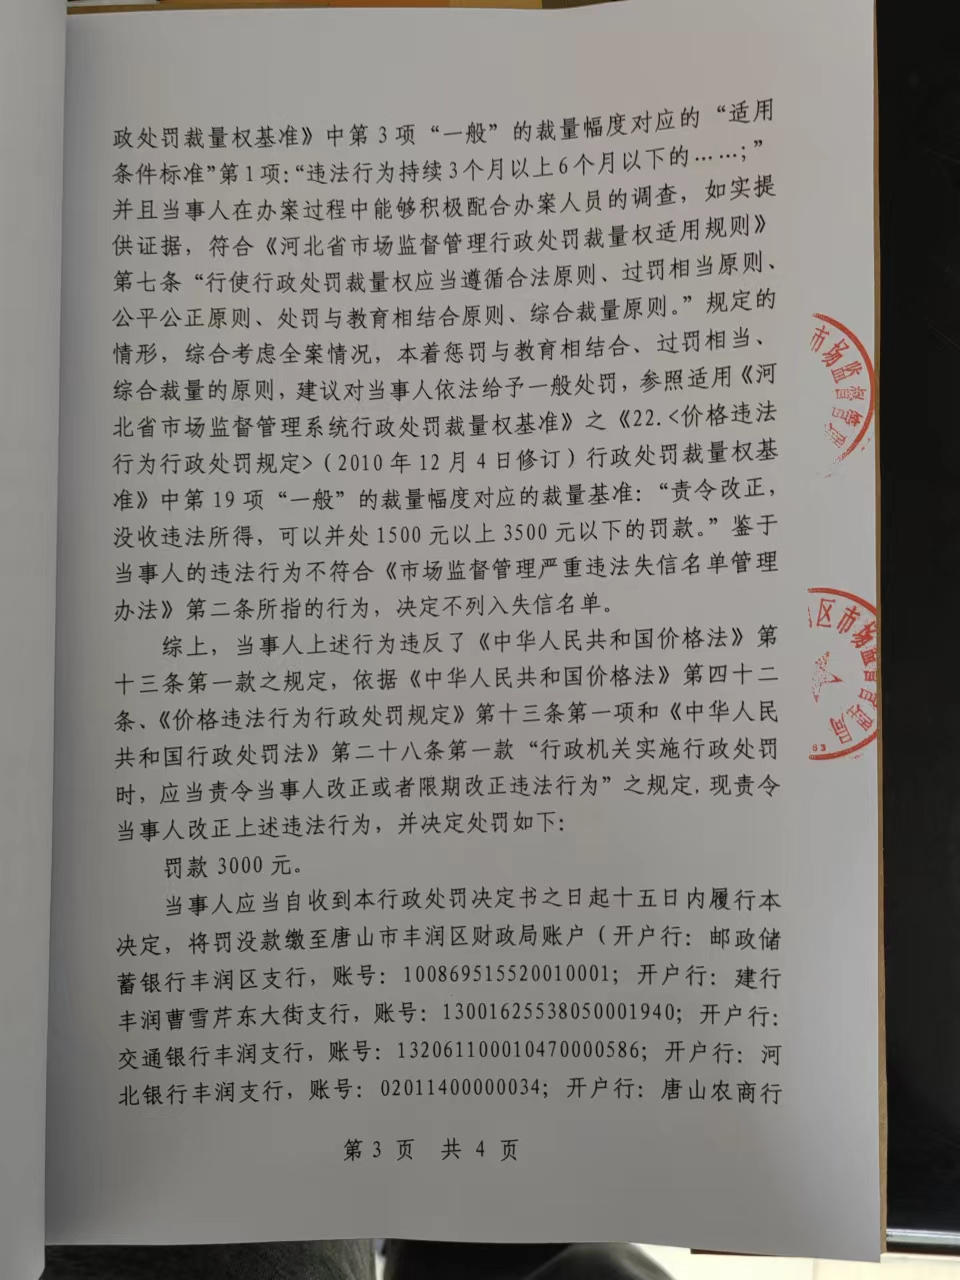 政处罚裁量权基准》中第3项“一般”的裁量幅度对应的“适用
条件标准”第1项:“违法行为持续3个月以上6个月以下的……；”
并且当事人在办案过程中能够积极配合办案人员的调查，如实提
供证据，符合《河北省市场监督管理行政处罚裁量权适用规则》
第七条“行使行政处罚裁量权应当遵循合法原则、过罚相当原则、
公平公正原则、处罚与教育相结合原则、综合裁量原则。”规定的
情形，综合考虑全案情况，本着惩罚与教育相结合、过罚相当、
综合裁量的原则，建议对当事人依法给予一般处罚，参照适用《河
北省市场监督管理系统行政处罚裁量权基准》之《22.<价格违法
行为行政处罚规定>（2010年12月4日修订）行政处罚裁量权基
准》中第19项“一般”的裁量幅度对应的裁量基准：“责令改正，
没收违法所得，可以并处1500元以上3500元以下的罚款。”鉴于
当事人的违法行为不符合《市场监督管理严重违法失信名单管理
办法》第二条所指的行为，决定不列入失信名单。
综上，当事人上述行为违反了《中华人民共和国价格法》第
十三条第一款之规定，依据《中华人民共和国价格法》第四十二
条、《价格违法行为行政处罚规定》第十三条第一项和《中华人民
共和国行政处罚法》第二十八条第一款“行政机关实施行政处罚
时，应当责令当事人改正或者限期改正违法行为”之规定，现责令
当事人改正上述违法行为，并决定处罚如下：
罚款3000元。
当事人应当自收到本行政处罚决定书之日起十五日内履行本
决定，将罚没款缴至唐山市丰润区财政局账户（开户行：邮政储
蓄银行丰润区支行，账号：100869515520010001；开户行：建行
丰润曹雪芹东大街支行，账号：13001625538050001940；开户行：
交通银行丰润支行，账号：132061100010470000586；开户行：河
北银行丰润支行，账号：02011400000034；开户行：唐山农商行
第3页 共4页
市场监督管
区市场监督管理